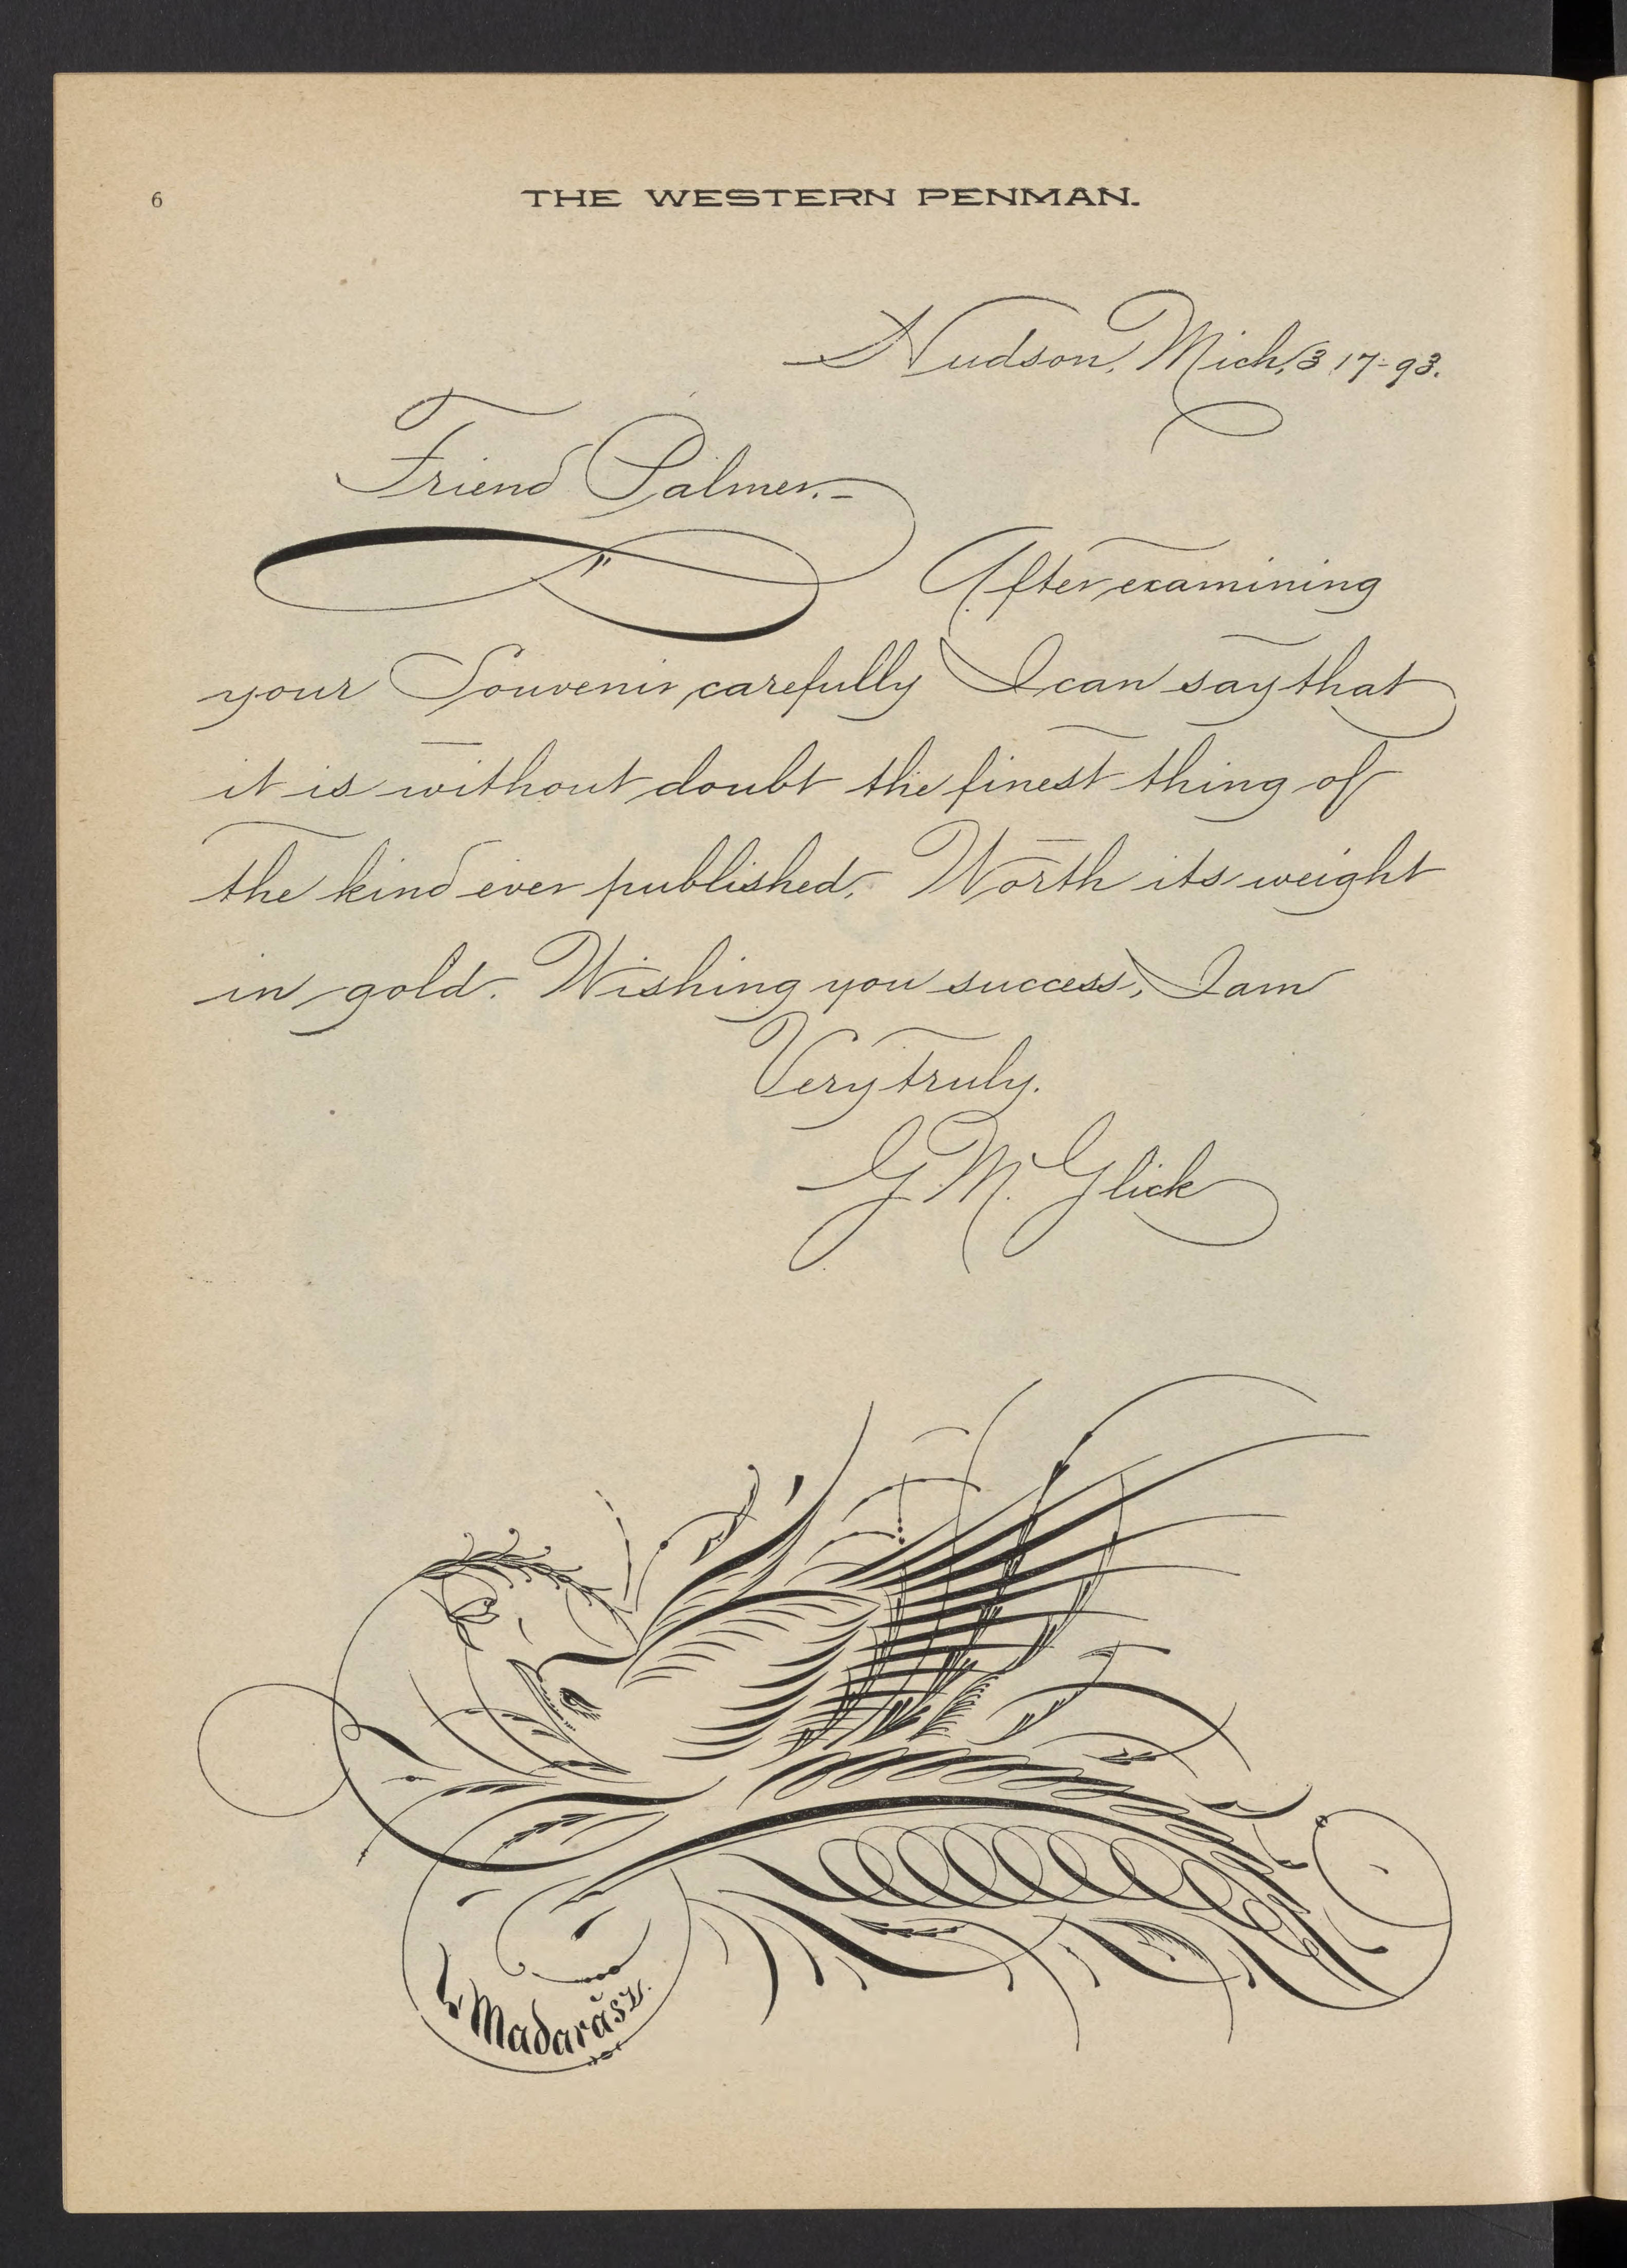 6
THE WESTERN PENMAN.
Hudson, Mich, 3 17-93.
Friend Palmer.-
After examining
your Souvenir carefully I can say that
it is without doubt the finest thing of
the kind ever published. Worth its weight
in gold. Wishing you success, I am
Very truly.
G. M. Glick
L. Madarász.